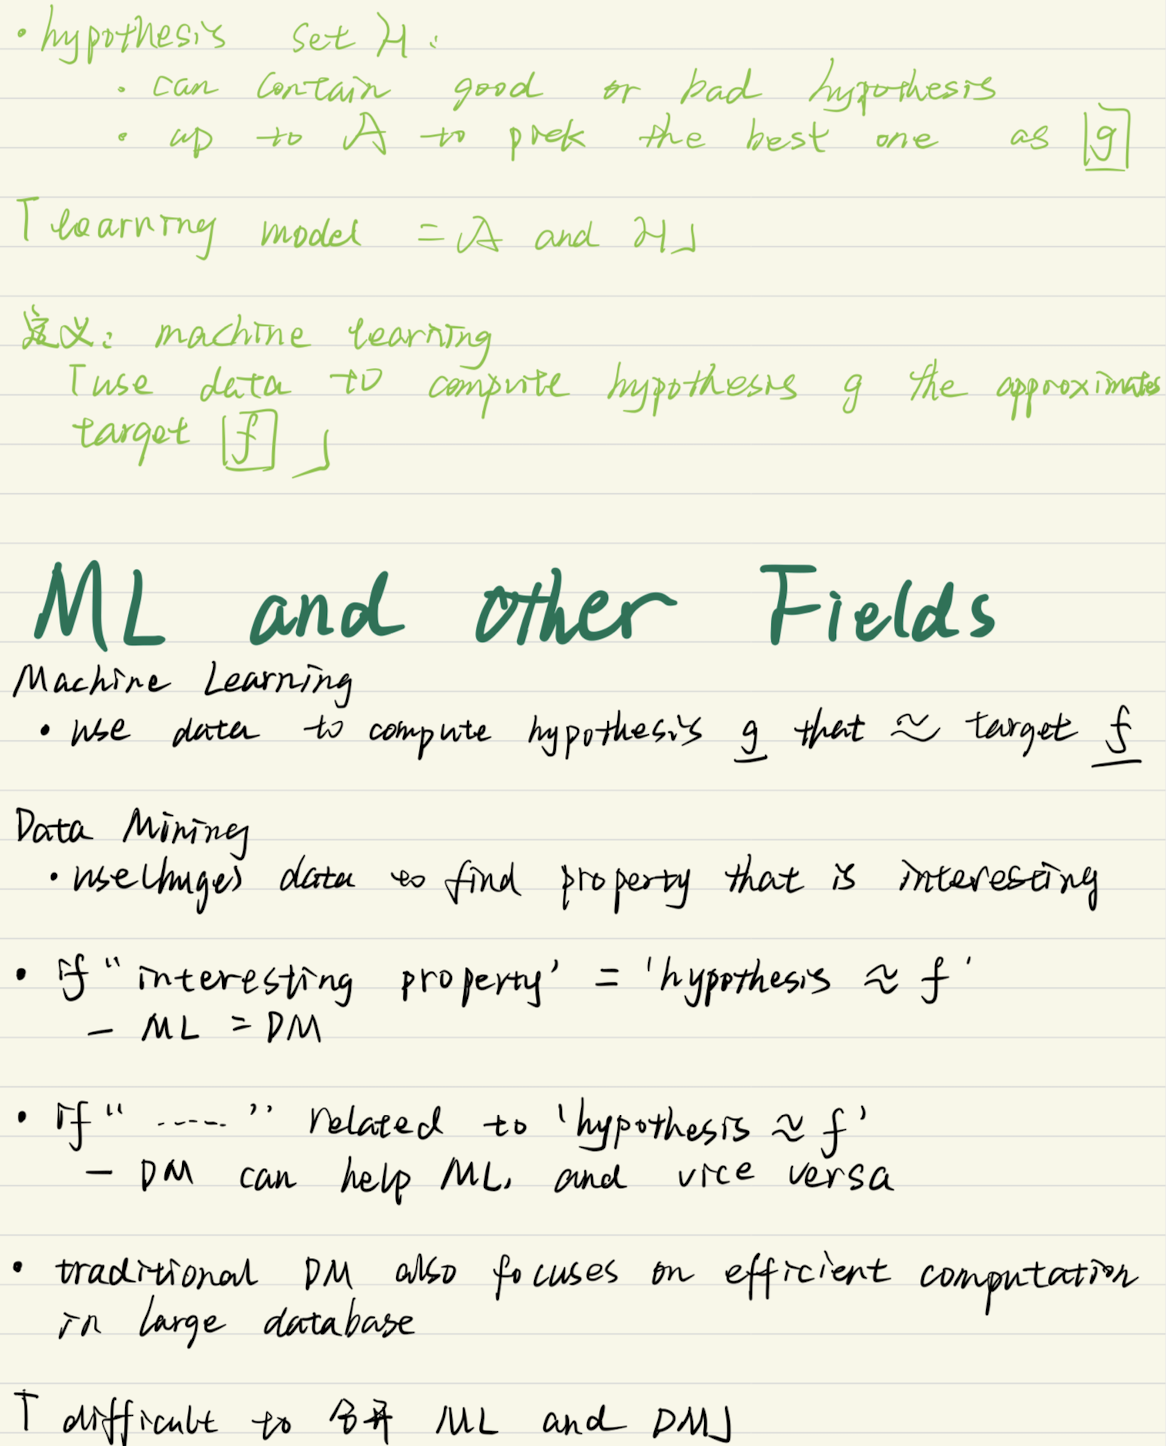 • hypothesis set H:
• can contain good or bad hypothesis
• up to A to pick the best one as g
「learning model = A and H」
定义: machine learning
「use data to compute hypothesis g the approximates
target f 」
ML and other Fields
Machine Learning
• use data to compute hypothesis g that ≈ target f
Data Mining
• use(huge) data to find property that is interesting
• if "interesting property' = 'hypothesis ≈ f'
– ML = DM
• if " ..... " related to 'hypothesis ≈ f'
– DM can help ML, and vice versa
• traditional DM also focuses on efficient computation
in large database
「difficult to ML and DM」